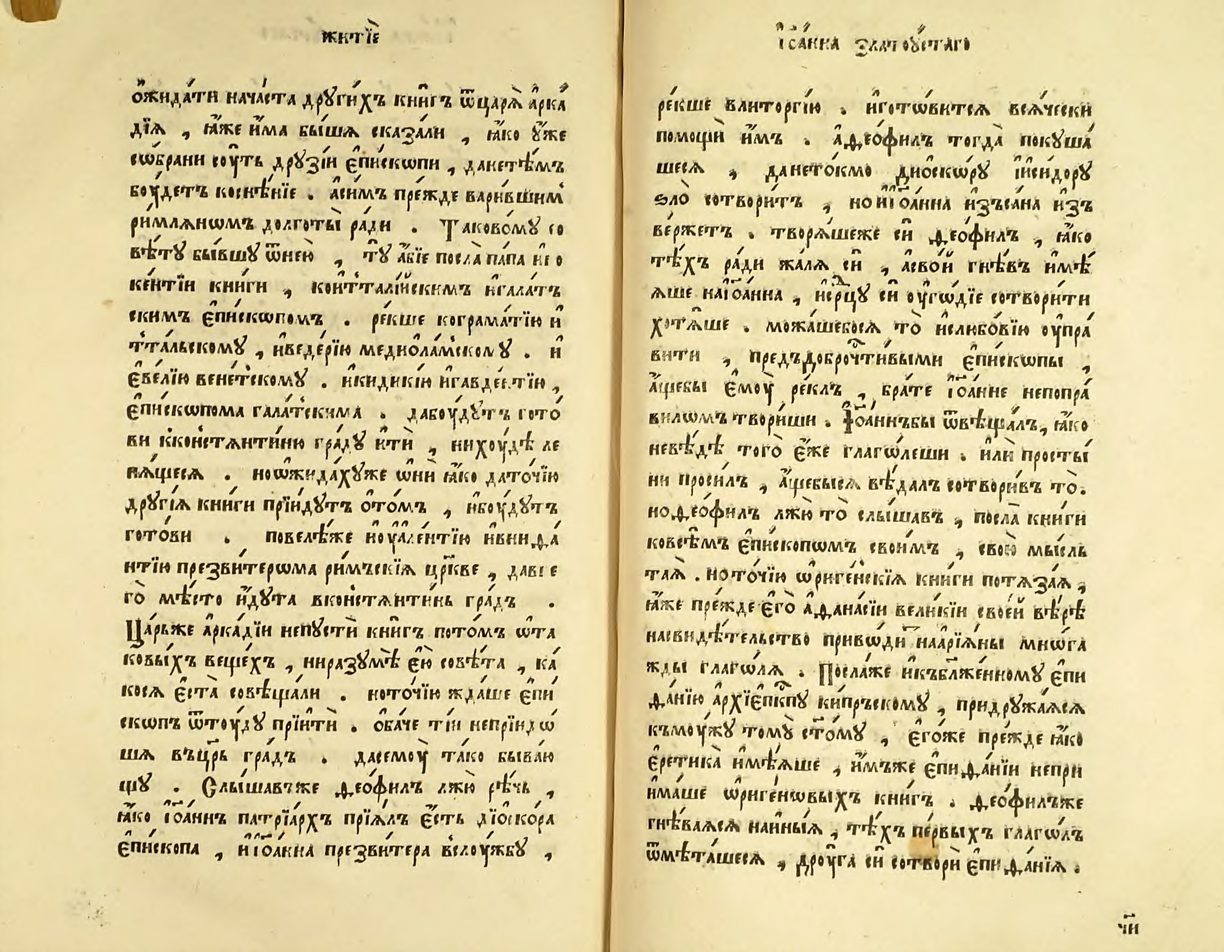 житїѐ
ѻ҆жида́ти нача́ста дрꙋги́хъ кни́гъ ѿцарѧ̀ а҆рка́
дїѧ , ꙗ҆́же и҆́ма бы́шѧ сказа́ли , ꙗ҆́ко ᲂу҆же
сѡ́брани сꙋ́ть дрꙋзі́и є҆пи́скѡпи , данетѣ́мъ
бꙋ́детъ косне́нїе . а҆си́мъ пре́жде вари́вшимъ
ри́млѧнѡмъ долготы̀ ра́ди . Таково́мꙋ со
вѣ́тꙋ бы́вшꙋ ѿне́ю , тꙋ̀ а҆́бїе посла̀ па́па и҆но
ке́нтїи кни́ги , ко́итталі́йскимъ и҆гала́тъ
скимъ є҆пи́скѡпомъ . ре́кше кограма́тїю и҆
тта́льскомꙋ , и҆веде́рїю медиѻла́мскомꙋ . и҆
є҆ве́лїю вене́тскомꙋ . и҆кидикі́ю и҆гавде́нтїю ,
є҆пи́скѡпома гала́тскима . дабꙋ́дꙋтъ гото́
ви кконстѧнти́ню гра́дꙋ и҆тѝ , нихꙋдѣ̀ ле
нѧ́щесѧ . ноѡ҆жида́хꙋже ѻ҆нѝ ꙗ҆́ко дато́чїю
дрꙋгі́ѧ кни́ги прїи́дꙋтъ ѻ҆то́мъ , и҆бꙋ́дꙋтъ
гото́ви . повелѣ́же и҆ᲂу҆але́нтїю и҆вики́ѳ а
нтїю презви́терѡма ри́мъскїѧ цр҃кве , давне
го̀ мѣ́сто и҆́дꙋта вконстѧнти́нь гра́дъ .
Ца́рьже а҆рка́дїи непꙋстѝ кни́гъ пото́мъ ѡ҆та
ковы́хъ веще́хъ , ниразꙋмѣ̀ є҆ю̀ совѣ́та , ка́
косѧ є҆ста̀ совѣща́ли . ното́чїю жда́ше є҆пи́
скѡпъ ѿтꙋ́дꙋ прїитѝ . ѻ҆ба́че ті́и непрїидо́
шѧ въцр҃ь гра́дъ . дасемꙋ̀ та́ко быва́ю
щꙋ . Слы́шавъже ѳео́филъ лжꙋ̀ рѣ́чь ,
ꙗ҆́ко і҆ѻа́ннъ патрїа́рхъ прїѧ́лъ є҆́сть дїѻ́скора
є҆пи́скопа , и҆і҆ѻа́нна презви́тера вслꙋ́жбꙋ ,
і҆ѻа́нна златоꙋ́стаго
ре́кше влитꙋргі́ю . и҆гото́витсѧ всѧ́чески
помощѝ и҆́мъ . а҆ѳео́филъ тогда̀ покꙋша́
шесѧ , дането́кмо дио́скорꙋ і҆иси́дорꙋ
ѕло̀ сотвори́тъ , нои҆і҆ѻа́нна и҆зъса́на и҆зъ
ве́ржетъ . творѧ́шеже сѝ ѳео́филъ , ꙗ҆́ко
тѣ́хъ ра́ди жа́лѧ сѝ , а҆сво́и гнѣ́въ и҆мѣ́
ѧше наі҆ѻа́нна , и҆се́рдцꙋ сѝ ᲂу҆го́дїе сотвори́ти
хотѧ́ше . можа́шебосѧ то̀ и҆слюбо́вїю ᲂу҆пра́
вити , предъдоброчⷭ҇ти́выми є҆пи́скѡпы ,
а҆́щебы є҆мꙋ̀ ре́клъ , бра́те і҆ѻа́нне непопра́
вилѡмъ твори́ши . і҆ѻа́ннъбы ѿвѣща́лъ , ꙗ҆́ко
невѣ́дѣ того̀ є҆́же глаго́леши . и҆лѝ просты́
ни проси́лъ , а҆́щебысѧ вѣ́далъ сотвори́въ то̀ .
ноѳео́филъ лжꙋ̀ то̀ слы́шавъ , посла̀ кни́ги
ковсѣ́мъ є҆пи́скопѡмъ свои́мъ , свою̀ мы́сль
таѧ̀ . ното́чїю ѡ҆риге́нскїѧ кни́ги потѧза́ѧ ,
ꙗ҆́же пре́жде є҆го̀ а҆ѳана́сїи вели́кїи свое́й вѣ́рѣ
насвидѣ́тельство привѡди́ наарїа́ны мно́га
жды глаго́лѧ . Посла́же и҆къбл҃же́нномꙋ є҆пи
ѳа́нїю а҆рхїє҆пⷭ҇кпꙋ ки́прьскомꙋ , придрꙋжа́ѧсѧ
къмꙋ́жꙋ томꙋ̀ ст҃о́мꙋ , є҆го́же пре́жде ꙗ҆́ко
є҆рети́ка и҆мѣ́ѧше , и҆́мъже є҆пиѳа́нїи непри
има́ше ѡ҆риге́новыхъ кни́гъ . ѳео́филъже
гнѣ́ваѧсѧ наи́ныѧ , тѣ́хъ пе́рвыхъ глаго́лъ
ѿмѣта́шесѧ , дрꙋ́га сѝ сотворѝ є҆пиѳа́нїѧ .
чи҃